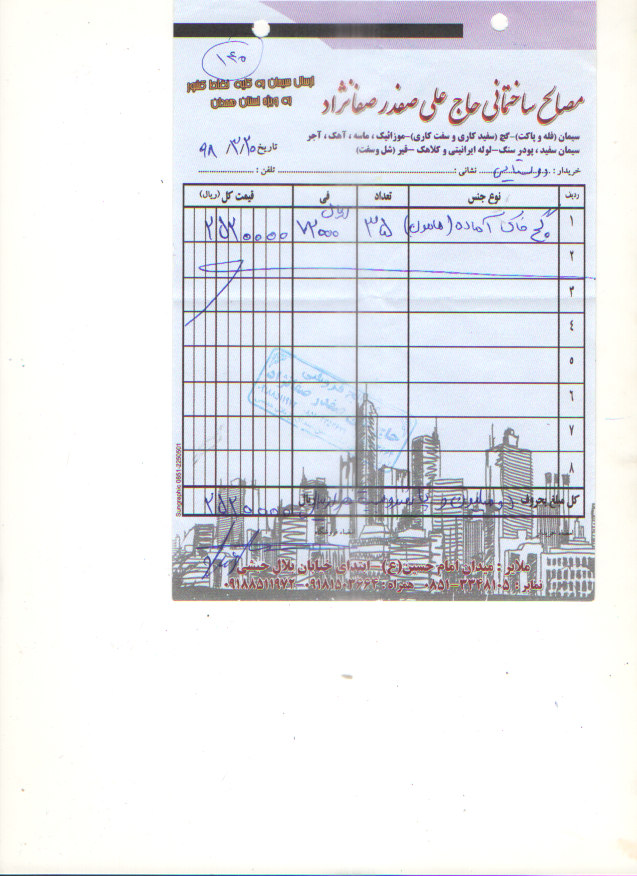 ۱۴۰
ارسال سیمان به کلیه نقاط کشور
به ویژه استان همدان
مصالح ساختمانی حاج علی صفدر صفانژاد
سیمان (فله و پاکت)-گچ (سفید کاری و سفت کاری)-موزائیک ، ماسه ، آهک ، آجر
سیمان سفید ، پودر سنگ-لوله ایرانیتی و کلاهک -قیر (شل و سفت)
تاریخ ۹۸/۳/۲۰
خریدار : نشانی : تلفن :
ردیف نوع جنس تعداد فی قیمت کل (ریال)
۱ گچ خاک آماده (هامون) ۳۵ ۷۲۰۰۰ ریال ۲۵۲۰۰۰۰
۲
۳
۴
۵
۶
۷
۸
کل مبلغ بحروف دو میلیون و پانصد و بیست هزار ریال ۲۵۲۰۰۰۰
ملایر : میدان امام حسین(ع)- ابتدای خیابان بلال حبشی
نمابر : ۳۳۴۸۱۰۵-۰۸۵۱ همراه : ۰۹۱۸۱۵۰۳۶۶۳-۰۹۱۸۸۵۱۱۹۷۲
Sungraphic 0851-2250501